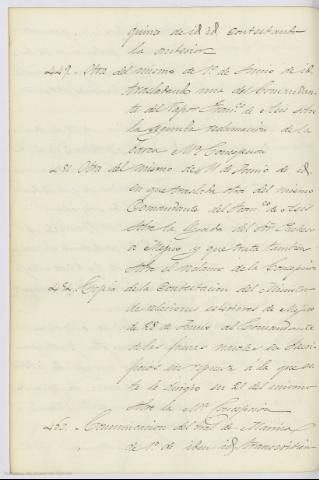 quince de id id contestando
la anterior
449. Otra del mismo de 1º. de Junio de id.
trasladando una del Comandan-
te del Vapor Franco. de Asis sobre
la segunda reclamación de la
barca Mª. Concepcion
451. Otra del mismo de 11 de Junio de id.
en que traslada otra del mismo
Comandante del Franco. de Asis
sobre la llegada del Sor. Pacheco
a Mejico y que trata tambien
sobre el reclamo de la Concepcion
454. Copia de la Contestacion del Ministro
de relaciones exteriores de Mejico
de 28 de Junio al Comandante
de las fuerzas navales en
en repuesta á la que
le dirigio en 21 del mismo
sobre la Mª. Concepcion
460. Comunicacion del Gral. de Marina
de 1º. de idem id.